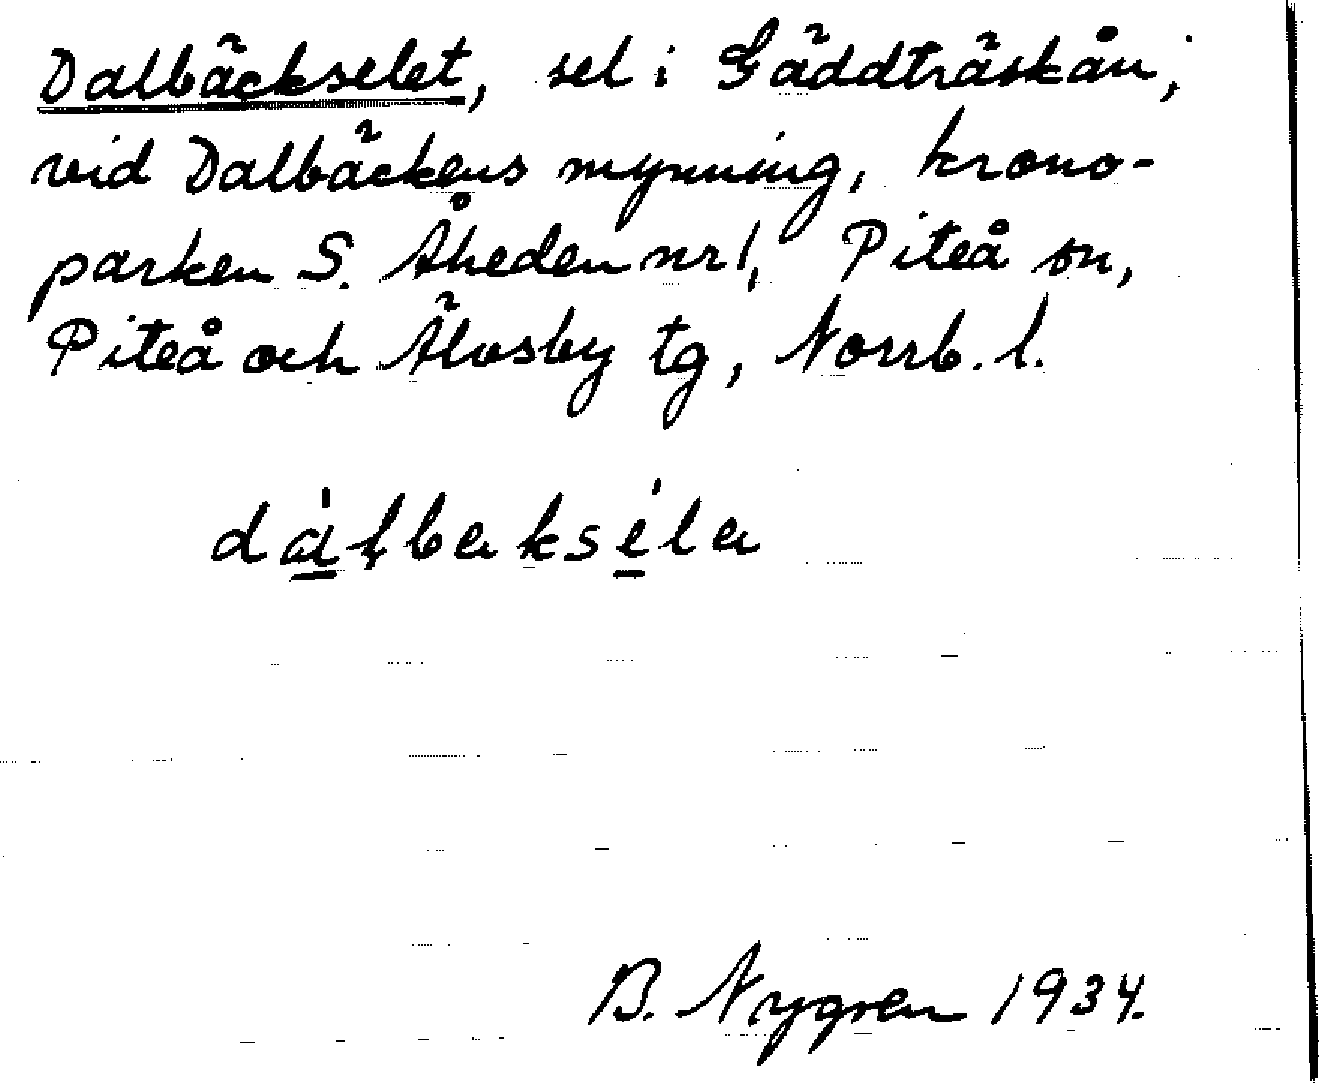 Dalbäckselet, sel i Gäddträskån,
vid Dalbäckens mynning, krono-
parken S. Åheden nr 1, Piteå sn,
Piteå och Älvsby tg, Norrb. l.
dálbakséla
B. Nygren 1934.